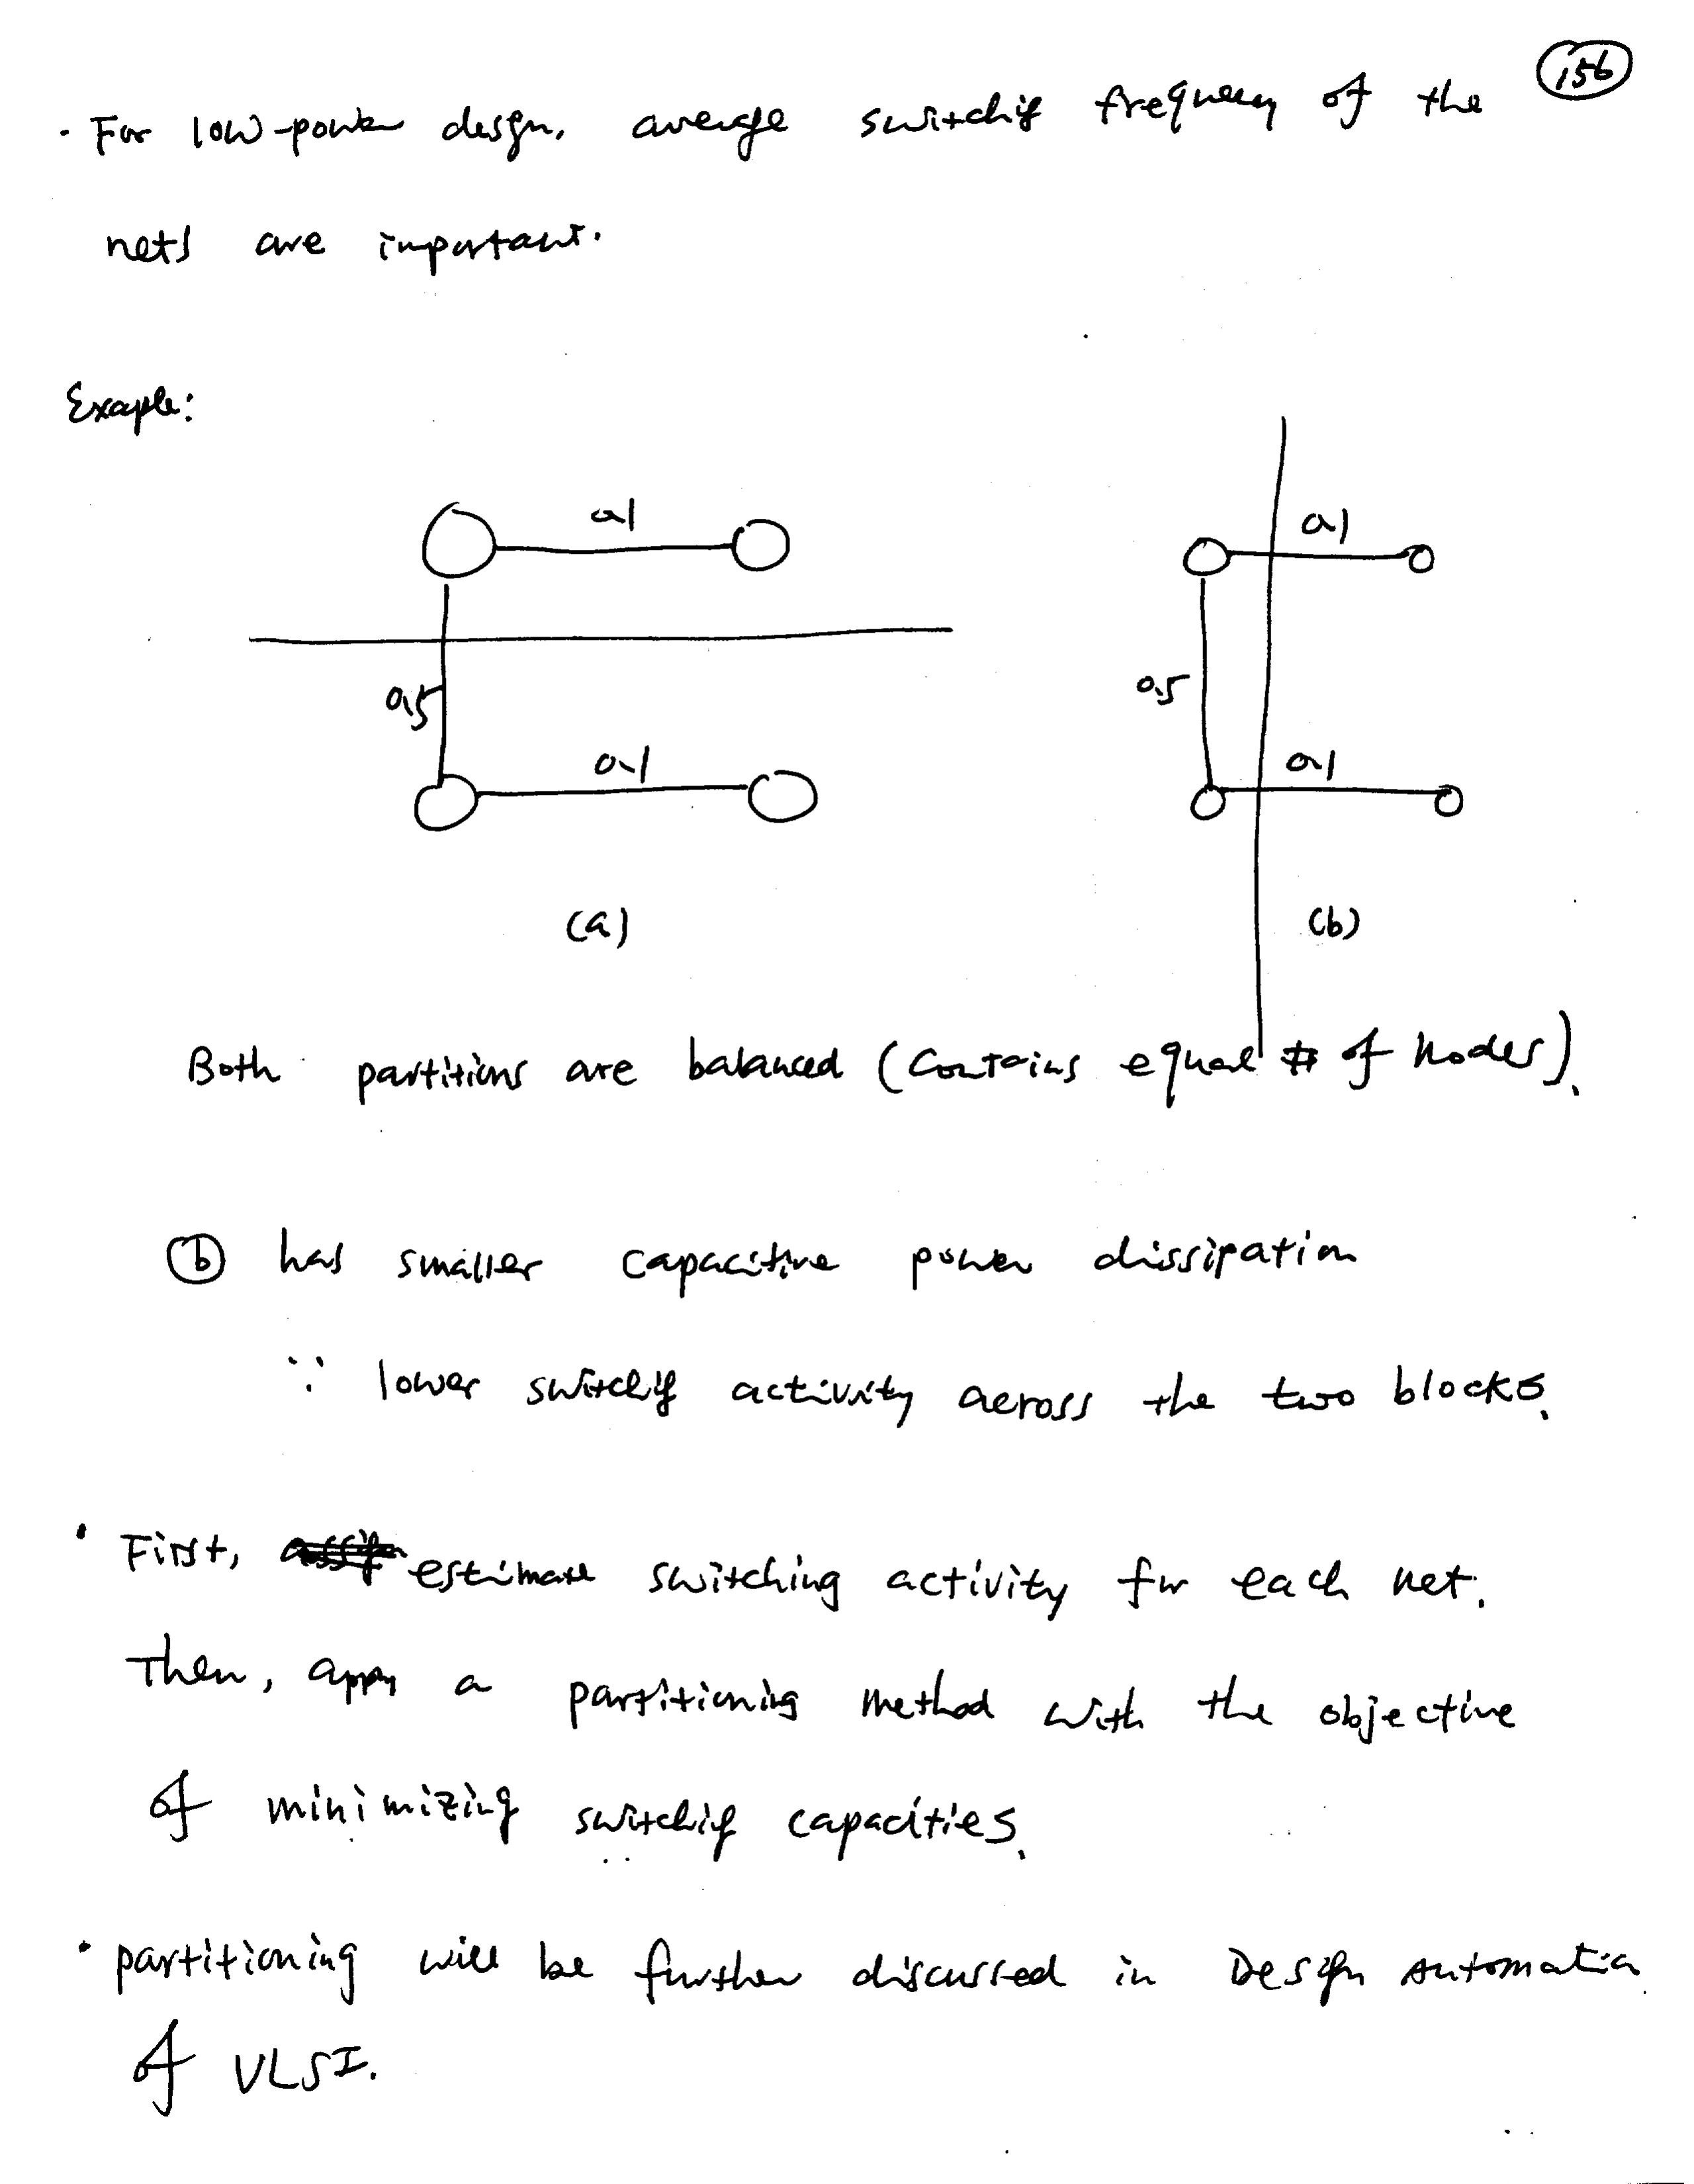 156
· For low-power design, average switching frequency of the
nets are important.
Exaple:
0.1
0.1
0.5
0.5
0.1
0.1
(a)
(b)
Both partitions are balanced (contains equal # of nodes).
ⓑ has smaller capacitive power dissipation
∵ lower switching activity across the two blocks.
· First, estimate switching activity for each net.
Then, apply a partitioning method with the objective
of minimizing switching capacities.
· partitioning will be further discussed in Design Automation
of VLSI.